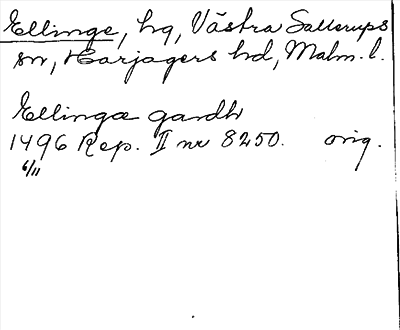 Ellinge, hg, Västra Sallerups
sn, Harjagers hd, Malm. l.
Ellingæ gardh
1496 Rep. II nr 8250. orig.
6/11